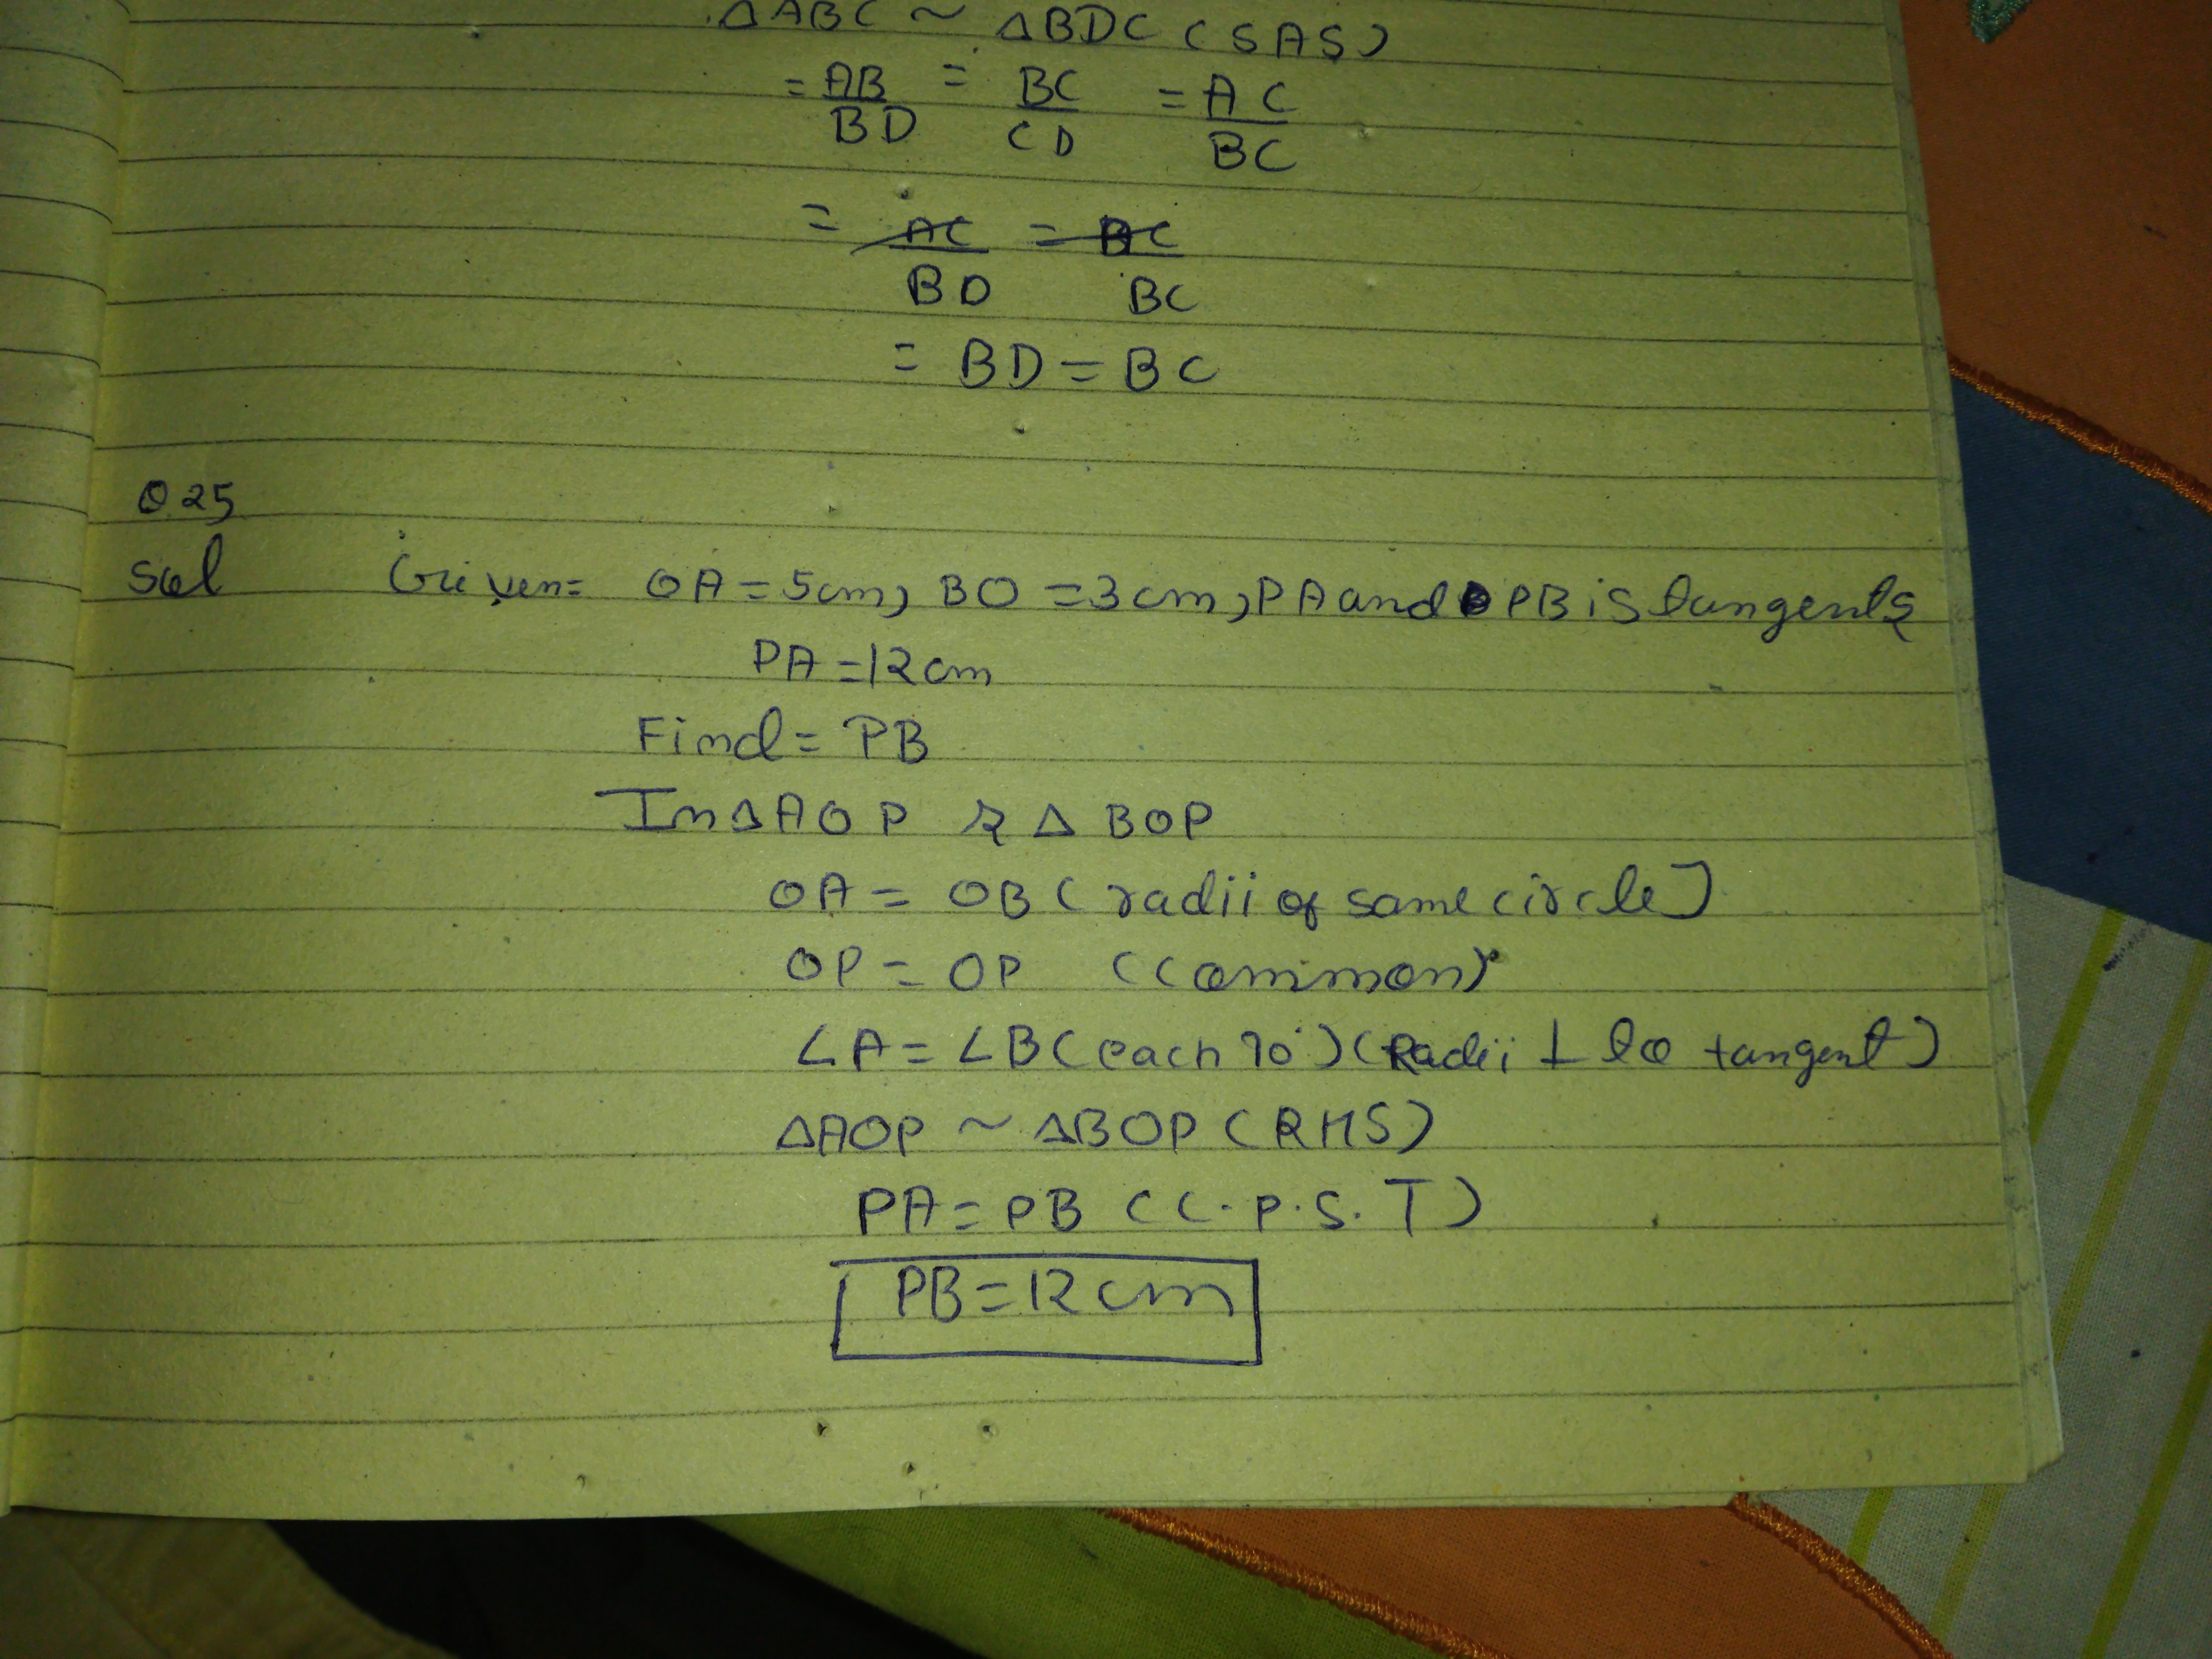 △ABC ~ △BDC (SAS)
= AB/BD = BC/CD = AC/BC
= AC/BD = AC/BC
= BD = BC
Q25
Sol Given= OA = 5cm, BO = 3cm, PA and PB is tangents
PA = 12cm
Find = PB
In △AOP & △BOP
OA = OB (radii of same circle)
OP = OP (common)
∠A = ∠B (each 90°) (Radii ⊥ to tangent)
△AOP ~ △BOP (RHS)
PA = PB (C.P.S.T)
PB = 12cm